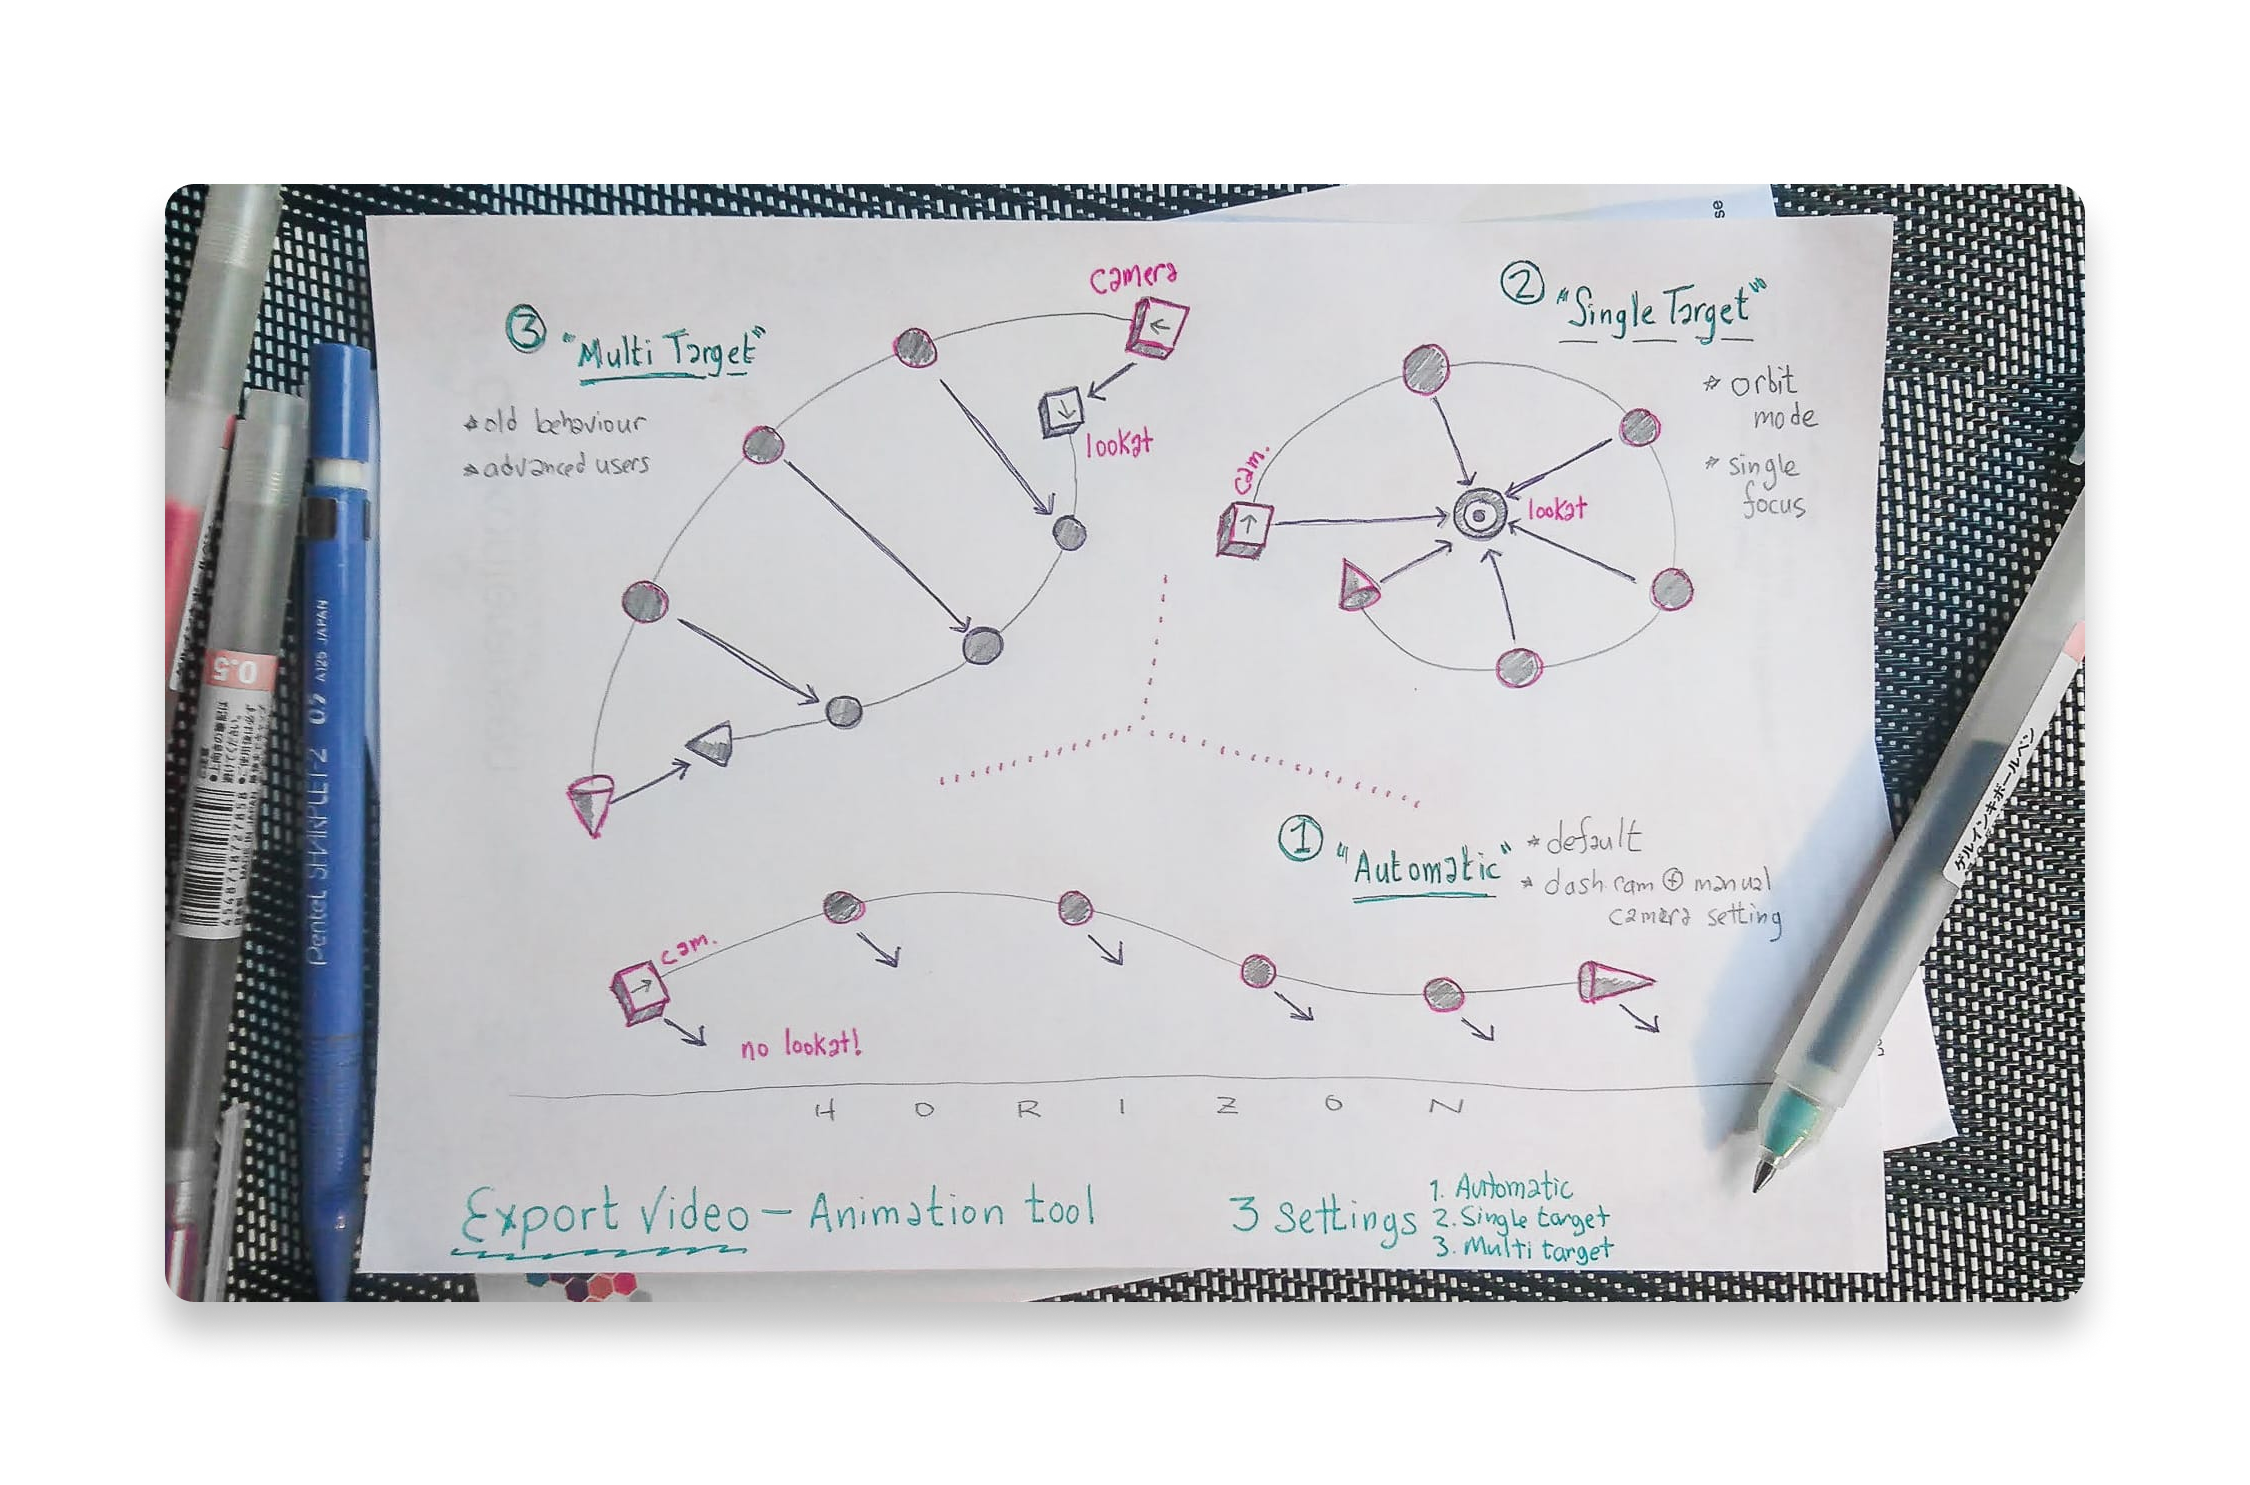 se
camera
③ "Multi Target"
* old behaviour
* advanced users
lookat
② "Single Target"
* orbit
mode
* single
focus
cam.
lookat
① "Automatic"
* default
* dash cam ⊕ manual
camera setting
cam.
no lookat!
H O R I Z O N
Export Video — Animation tool
3 Settings
1. Automatic
2. Single target
3. Multi target
0.5
Pentel SHARPLET-2 0.9 A125 JAPAN
4568718727858
ゲルインキボールペン